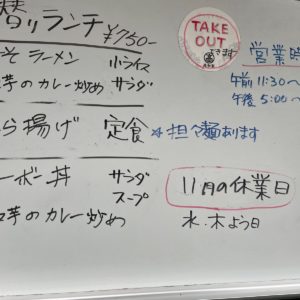 替りランチ ¥750-
そ ラーメン 小ライス
芋のカレー炒め サラダ
ら揚げ 定食 ☆担々麺あります
ーボー丼 サラダ
スープ
芋のカレー炒め
TAKE OUT
できます
営業時
午前 11:30~
午後 5:00~
11月の休業日
水・木よう日